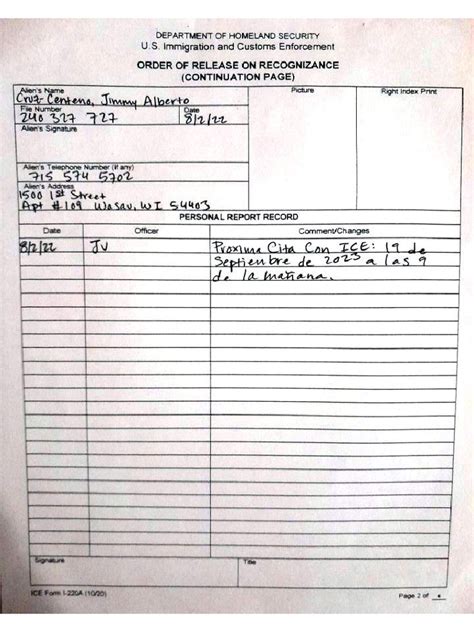 DEPARTMENT OF HOMELAND SECURITY
U.S. Immigration and Customs Enforcement
ORDER OF RELEASE ON RECOGNIZANCE
(CONTINUATION PAGE)
Alien's Name Picture Right Index Print
Cruz Centeno, Jimmy Alberto
File Number Date
240 327 727 8/2/22
Alien's Signature
Alien's Telephone Number (If any)
715 574 5702
Alien's Address
1500 1st Street
Apt #109 Wasau, WI 54403
PERSONAL REPORT RECORD
Date Officer Comment/Changes
8/2/22 JV Proxima Cita Con ICE: 19 de
Septienbre de 2023 a las 9
de la mañana.
Signature Title
ICE Form I-220A (10/20) Page 2 of